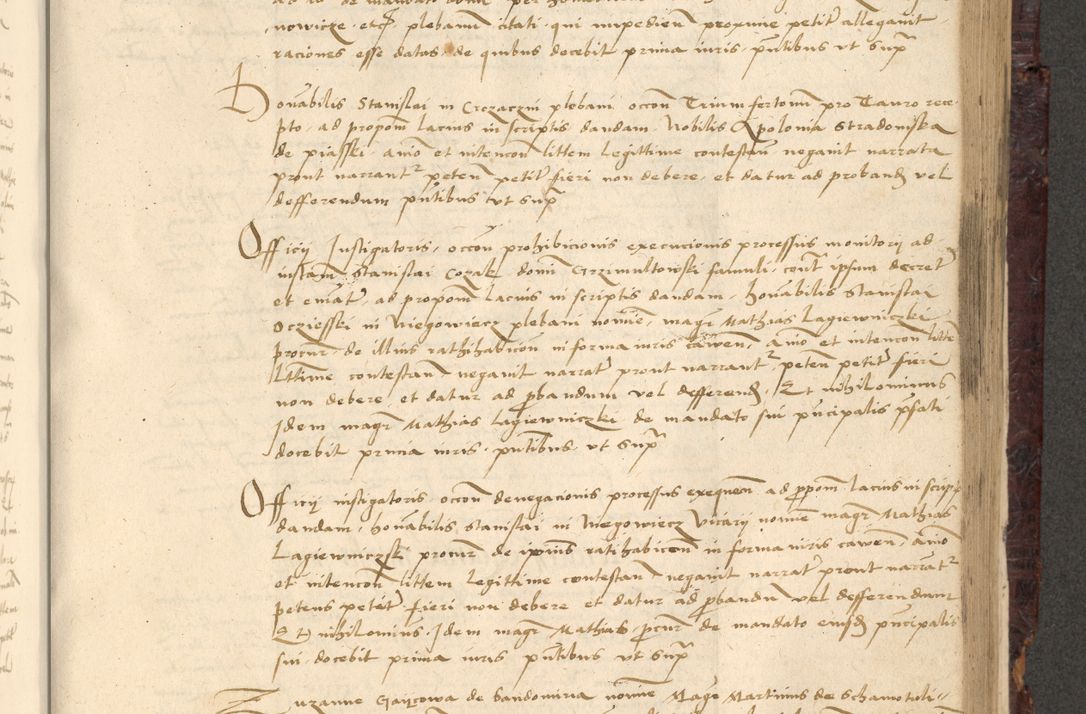 nowicze etc plebanum citati qui impedien proxime petit allegavit
raciones esse datas de quibus docebit prima iuris pntibus ut supra
Honabilis Stanislai in Crczaczin plebani occon Trium fertonum pro Tauro rece
pto ad propom lacius in scriptis dandam Nobilis Apolonia Stradomska
de piasski animo et intencon littem legittime contestan negavit narrata
prout narrantr peten petit fieri non debere et datur ad proband vel
defferendum pntibus ut supra
Officij Instigatoris occon prohibicionis execucionis processus monitorij ad
instam Stanislai Cozak domi Crzimultowski famuli cont ipsum decret
et emat ad propom lacius in scriptis dandam honabilis Stanislai
Ocziesski in Niegowiecz plebani nomine magr Mathias Lagiewniczki
procur de illius rathihabicon in forma iuris caven animo et intencon litte
lttime contestan negavit narrat prout narrantr peten petit fieri
non debere et datur ad pbandum vel defferend Et nihilominus
Idem magr Mathias Lagiewniczki de mandato sui pncipalis pfati
docebit prima iuris pntibus ut supra
Officij instigatoris occon denegacionis processus exequen ad ppom lacius in script
dandam honabilis Stanislai in Niegowiecz vicarij nomine magr Mathias
Lagiewniczki procur de ipius ratihabicon in forma iuris caven animo
et intencon littem legittime contestan negavit narrat prout narratr
petens petit fieri non debere et datur ad pbandu vel defferendum
Et nihilominus Idem magr Mathias pcur de mandato eiusd pncipalis
sui docebit prima iuris pntibus ut supra
Zuzanne Gaijcowa de Sandomiria nomine Magr Martinus de Schamotuli